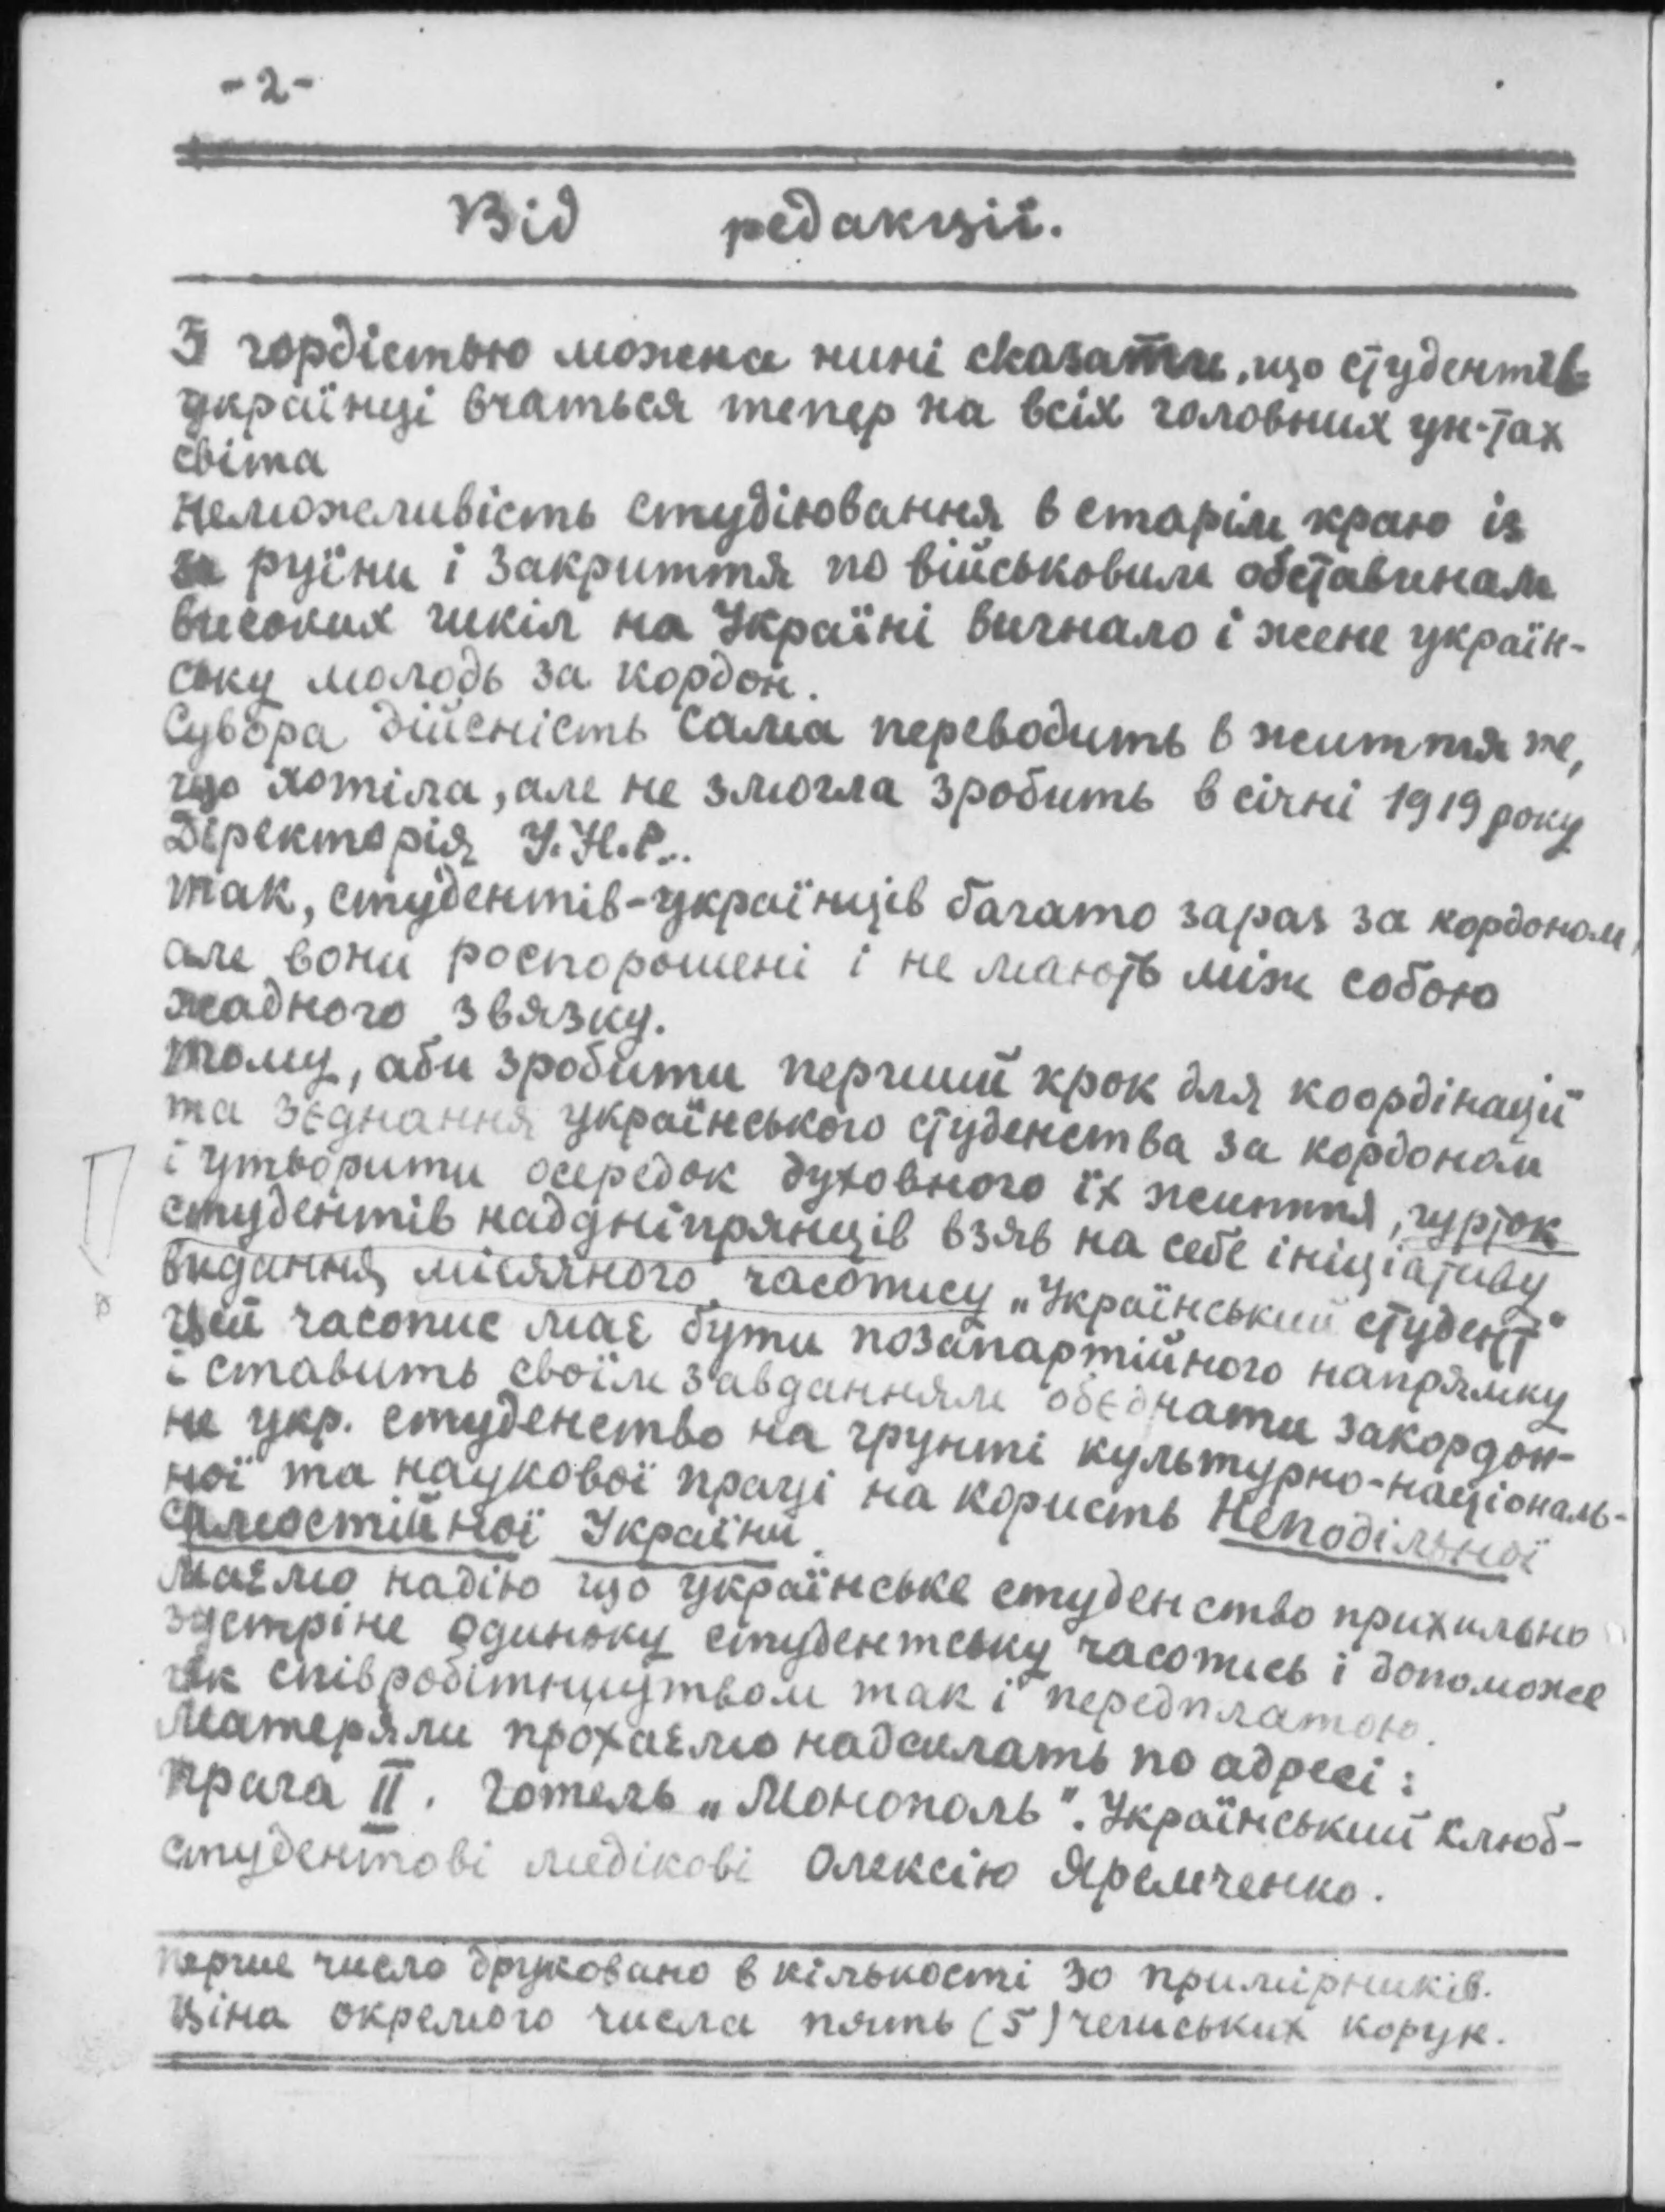 -2-
Від редакції.
З гордістью можена нині сказати, що студенти
українці вчаться тепер на всіх головних ун-тах
світа
Неможливість студіювання в старім краю із
за руїни і закриття по військовим обставинам
високих шкіл на Україні вигнало і жене україн-
ську молодь за кордон.
Сувора дійсність сама переводить в життя те,
що хотіла, але не змогла зробить в січні 1919 року
Діректорія У.Н.Р..
Так, студентів-українців багато зараз за кордоном,
але вони роспорошені і не мають між собою
жадного звязку.
Тому, аби зробити перший крок для коордінації
та зєднання українського студенства за кордоном
і утворити осередок духовного їх життя, гурток
студентів наддніпрянців взяв на себе ініціативу
видання місячного часопису „Український студент"
Цей часопис має бути позапартійного напрямку
і ставить своїм завданням обєднати закордон-
не укр. студенство на грунті культурно-національ-
ної та наукової праці на користь Неподільної
самостійної України.
Маємо надію що українське студенство прихильно
зустріне одиноку студентську часопись і допоможе
як співробітництвом так і передплатою.
Матеряли прохаємо надсилать по адресі:
Прага II. Готель „Монополь". Український Клюб-
студентові медікові Олексію Яремченко.
Перше число друковано в кількості 30 примірників.
Ціна окремого числа пять (5) чешських корун.